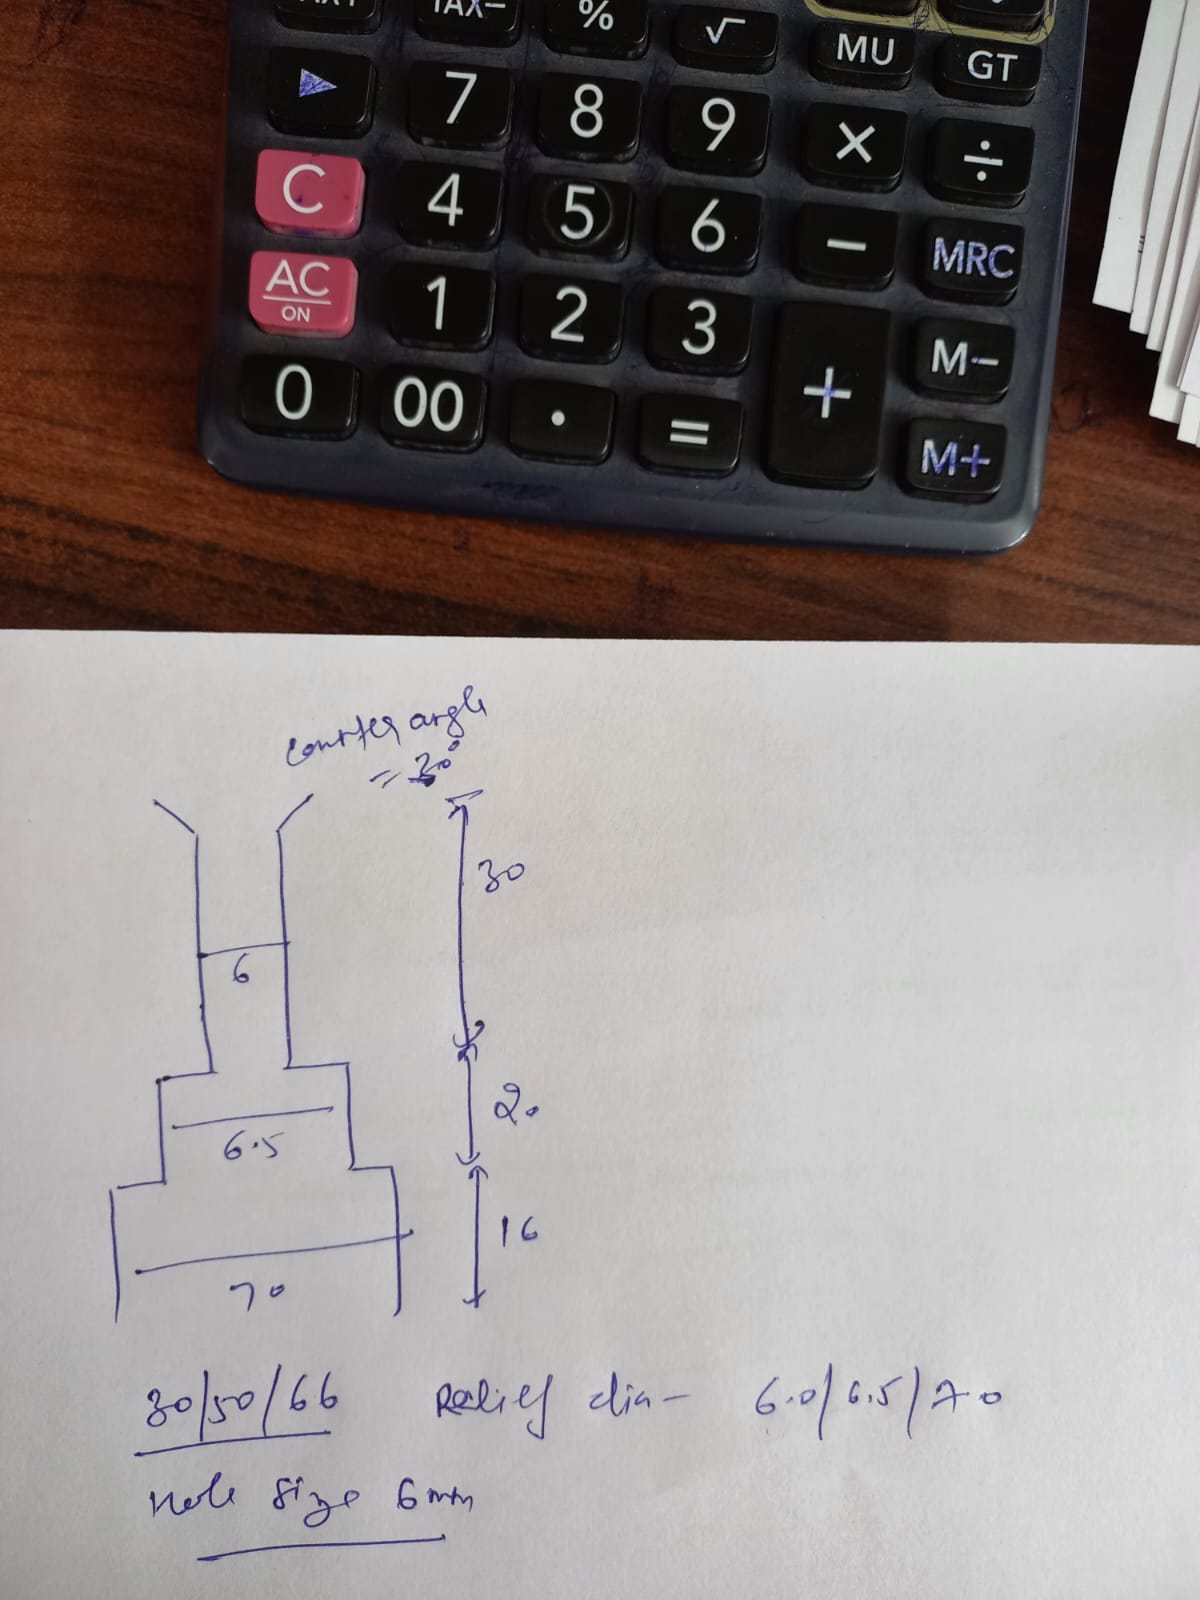 TAX-
%
√
MU
GT
▶
7
8
9
×
÷
C
4
5
6
−
MRC
AC
ON
1
2
3
+
M−
0
00
.
=
M+
counter angle
= 30°
30
6
20
6.5
16
70
30/50/66 Relief dia - 6.0/6.5/7.0
Hole size 6mm